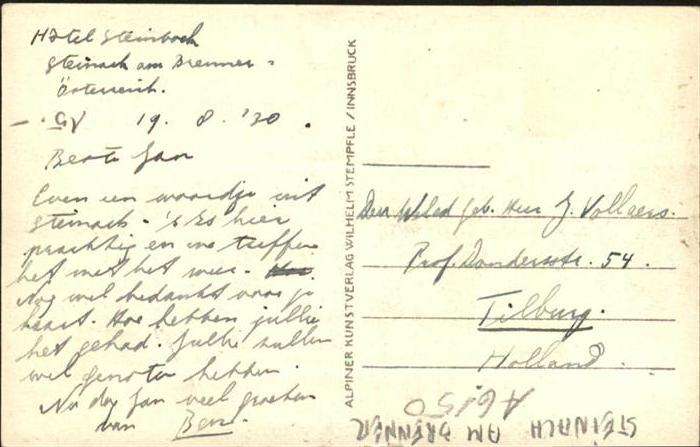 Hotel Steinbock
Steinach am Brenner -
Österreich.
19. 8. '30.
Beste Jan
Even een woordje uit
Steinach. 't Is hier
prachtig en we treffen
het met het weer.
Nog wel bedankt voor je
kaart. Hoe hebben jullie
het gehad. Jullie zullen
wel genoten hebben.
Nu dag Jan veel groeten
van
ALPINER KUNSTVERLAG WILHELM STEMPFLE / INNSBRUCK
Den Geb. Heer J. Vollaers.
Prof. Dondersstr. 54.
Tilburg.
Holland.
A6150
STEINACH AM BRENNER